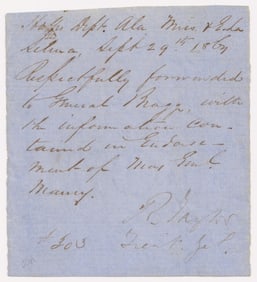 Hdqrs Dept. Ala. Miss. & E La
Selma, Sept 29th 1864
Respectfully forwarded
to General Bragg, with
the information con-
tained in Endorse-
ment of Maj Genl.
Maury.
R Taylor
Lieut. Gel.